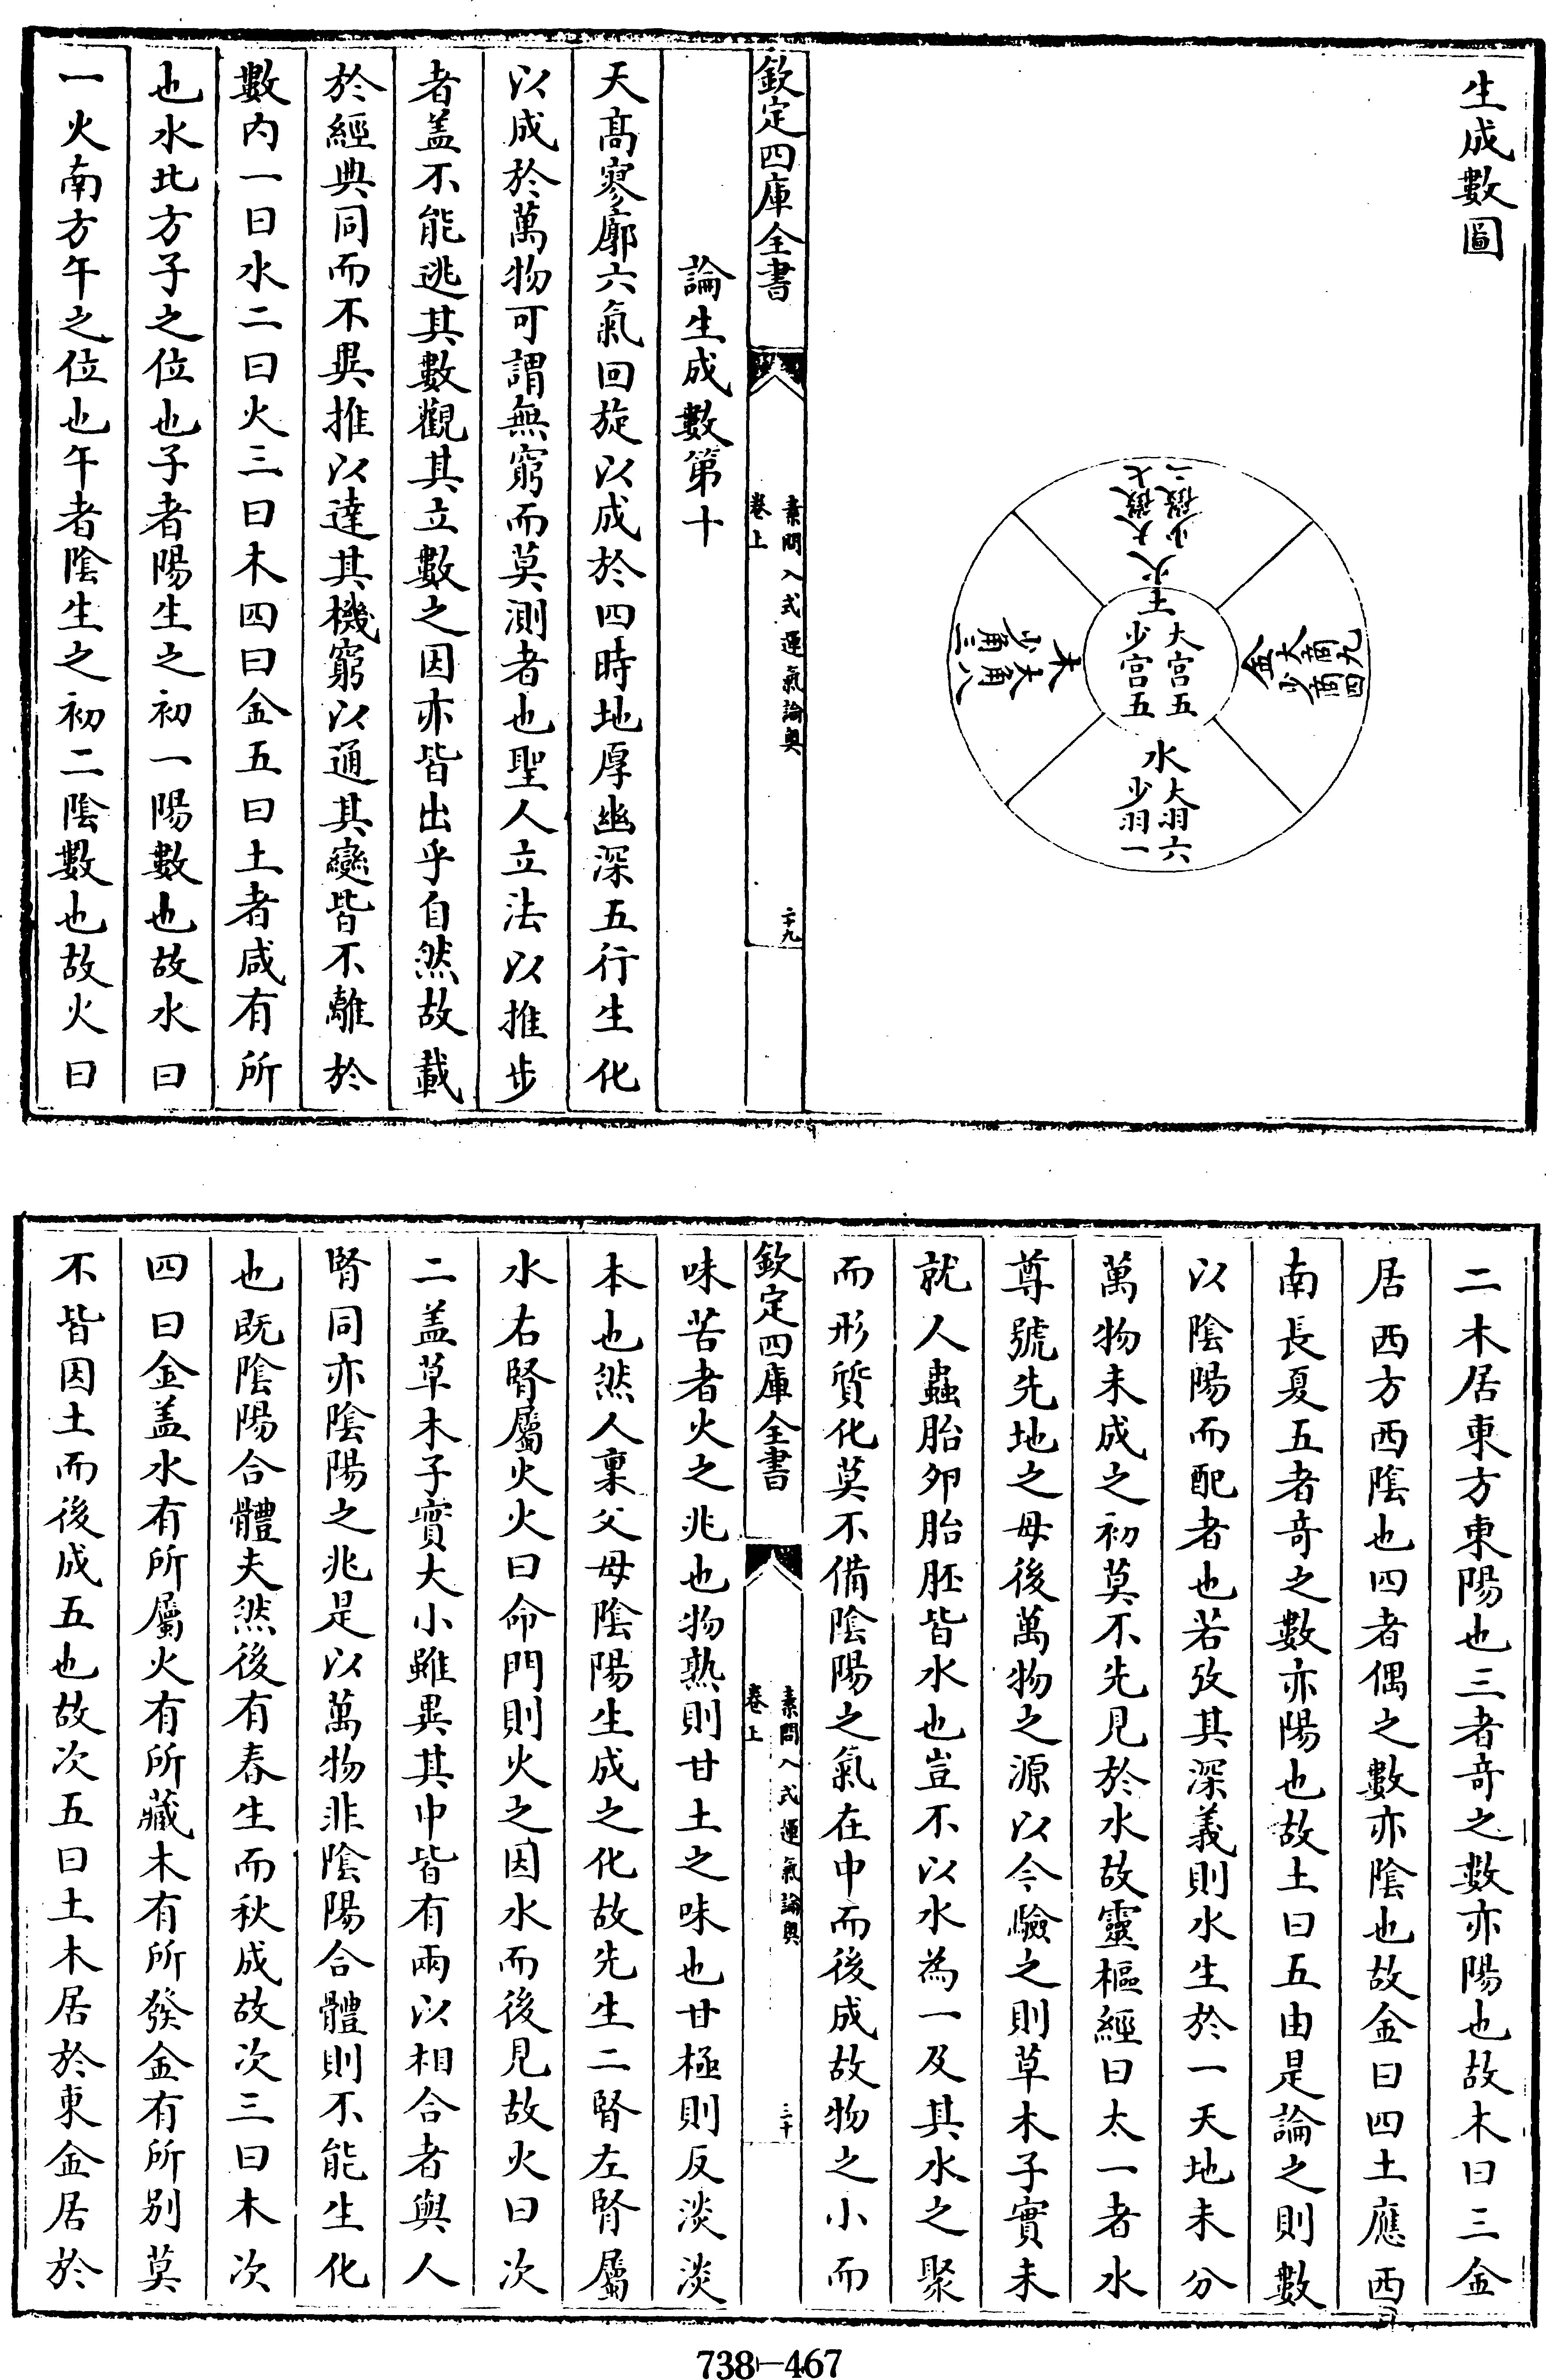 生成數圖
火
少徵二
大徵七
木
大角八
少角三
土
大宫五
少宫五
金
大商九
少商四
水
大羽六
少羽一
欽定四庫全書
素問入式運氣論奥
卷上
二十九
論生成數第十
天髙寥廓六氣回旋以成於四時地厚幽深五行生化
以成於萬物可謂無窮而莫測者也聖人立法以推步
者盖不能逃其數觀其立數之因亦皆出乎自然故載
於經典同而不異推以達其機窮以通其變皆不離於
數内一曰水二曰火三曰木四曰金五曰土者咸有所
也水北方子之位也子者陽生之初一陽數也故水曰
一火南方午之位也午者陰生之初二陰數也故火曰
二木居東方東陽也三者竒之數亦陽也故木曰三金
居西方西陰也四者偶之數亦陰也故金曰四土應西
南長夏五者竒之數亦陽也故土曰五由是論之則數
以陰陽而配者也若攷其深義則水生於一天地未分
萬物未成之初莫不先見於水故靈樞經曰太一者水
尊號先地之母後萬物之源以今驗之則草木子實未
就人蟲胎夘胎胚皆水也豈不以水為一及其水之聚
而形質化莫不備陰陽之氣在中而後成故物之小而
欽定四庫全書
素問入式運氣論奥
卷上
三十
味苦者火之兆也物熟則甘土之味也甘極則反淡淡
本也然人稟父母陰陽生成之化故先生二腎左腎屬
水右腎屬火火曰命門則火之因水而後見故火曰次
二盖草木子實大小雖異其中皆有兩以相合者與人
腎同亦陰陽之兆是以萬物非陰陽合體則不能生化
也既陰陽合體夫然後有春生而秋成故次三曰木次
四曰金盖水有所屬火有所藏木有所發金有所别莫
不皆因土而後成五也故次五曰土木居於東金居於
738—467